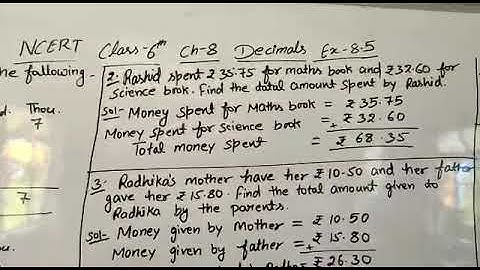 NCERT Class-6th Ch-8 Decimals Ex-8.5
he following -
d. Thou.
7
7
2. Rashid spent ₹ 35.75 for maths book and ₹ 32.60 for
science book. Find the total amount spent by Rashid.
Sol- Money spent for Maths book = ₹ 35.75
Money spent for Science book = + ₹ 32.60
Total money spent = ₹ 68.35
3. Radhika's mother have her ₹ 10.50 and her father
gave her ₹ 15.80. Find the total amount given to
Radhika by the parents.
Sol- Money given by Mother = ₹ 10.50
Money given by father = + ₹ 15.80
= ₹ 26.30